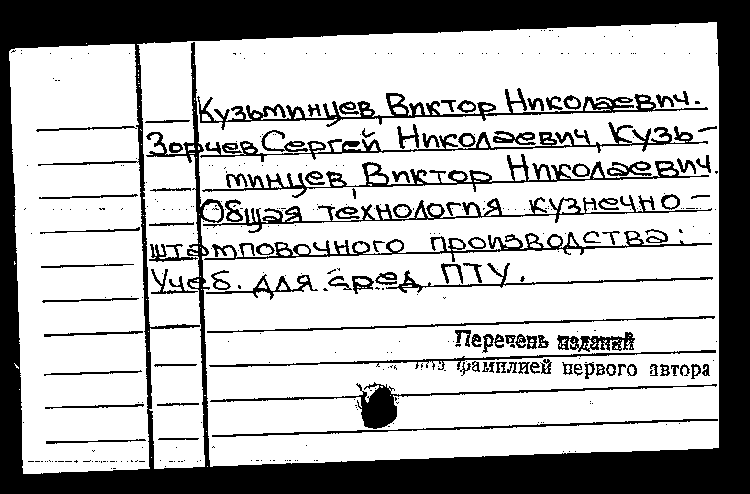 Кузьминцев, Виктор Николаевич.
Зорчев, Сергей Николаевич, Кузь-
минцев, Виктор Николаевич.
Общая технология кузнечно-
штамповочного производства:
Учеб. для сред. ПТУ.
Перечень изданий
под фамилией первого автора